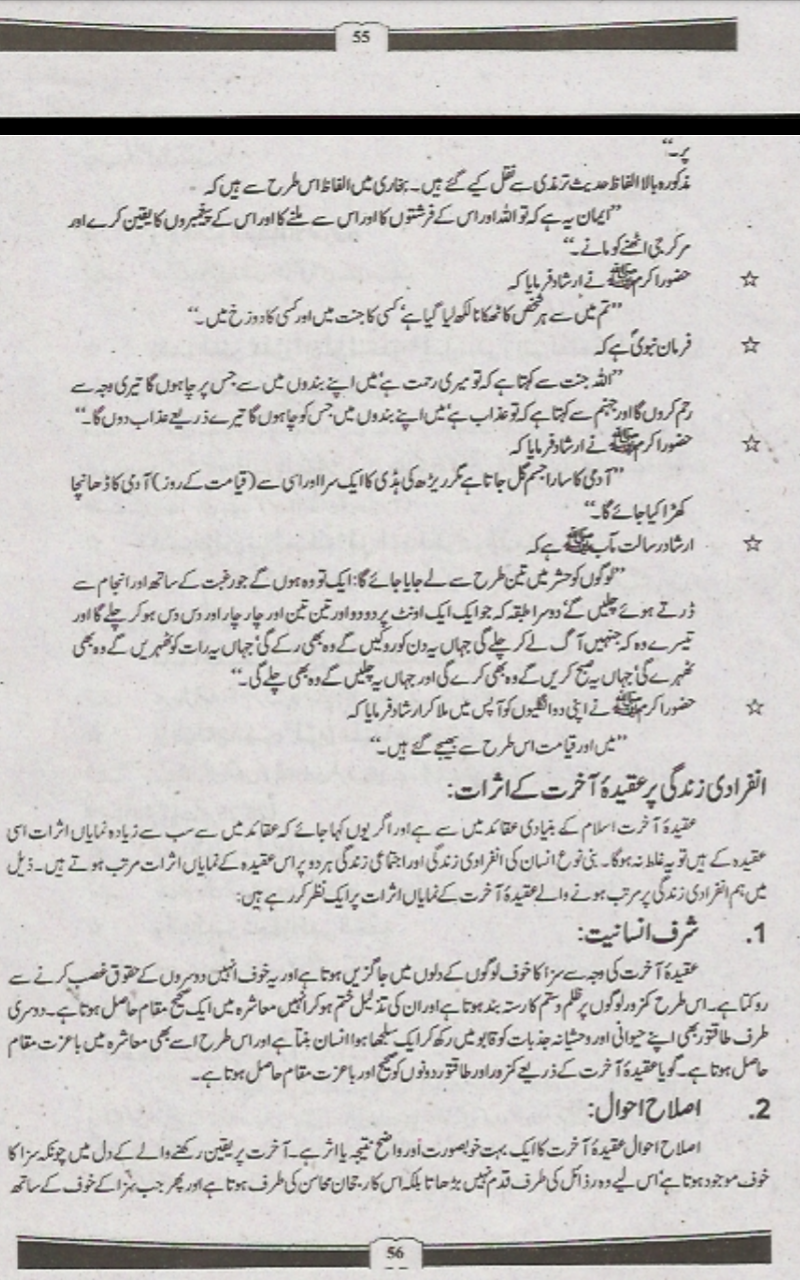 55
پر۔‘‘
مذکورہ بالا الفاظ حدیث ترمذی سے نقل کیے گئے ہیں۔ بخاری میں الفاظ اس طرح سے ہیں کہ
’’ایمان یہ ہے کہ تو اللہ اور اس کے فرشتوں کا اور اس سے ملنے کا اور اس کے پیغمبروں کا یقین کرے اور
مر کر جی اٹھنے کو مانے۔‘‘
☆ حضور اکرم ﷺ نے ارشاد فرمایا کہ
’’تم میں سے ہر شخص کا ٹھکانا لکھ لیا گیا ہے‘ کسی کا جنت میں اور کسی کا دوزخ میں۔‘‘
☆ فرمان نبویؐ ہے کہ
’’اللہ جنت سے کہتا ہے کہ تو میری رحمت ہے‘ میں اپنے بندوں میں سے جس پر چاہوں گا تیری وجہ سے
رحم کروں گا اور جہنم سے کہتا ہے کہ تو عذاب ہے‘ میں اپنے بندوں میں جس کو چاہوں گا تیرے ذریعے عذاب دوں گا۔‘‘
☆ حضور اکرم ﷺ نے ارشاد فرمایا کہ
’’آدمی کا سارا جسم گل جاتا ہے مگر ریڑھ کی ہڈی کا ایک سرا اور اسی سے (قیامت کے روز) آدمی کا ڈھانچا
کھڑا کیا جائے گا۔‘‘
☆ ارشاد رسالت مآب ﷺ ہے کہ
’’لوگوں کو حشر میں تین طرح سے لے جایا جائے گا: ایک تو وہ ہوں گے جو رغبت کے ساتھ اور انجام سے
ڈرتے ہوئے چلیں گے‘ دوسرا طبقہ کہ جو ایک ایک اونٹ پر دو دو اور تین تین اور چار چار اور دس دس ہو کر چلے گا اور
تیسرے وہ کہ جنہیں آگ لے کر چلے گی جہاں یہ دن کو روکیں گے وہ بھی رکے گی‘ جہاں یہ رات کو ٹھہریں گے وہ بھی
ٹھہرے گی‘ جہاں یہ صبح کریں گے وہ بھی کرے گی اور جہاں یہ چلیں گے وہ بھی چلے گی۔‘‘
☆ حضور اکرم ﷺ نے اپنی دو انگلیوں کو آپس میں ملا کر ارشاد فرمایا کہ
’’میں اور قیامت اس طرح سے بھیجے گئے ہیں۔‘‘
انفرادی زندگی پر عقیدۂ آخرت کے اثرات:
عقیدۂ آخرت اسلام کے بنیادی عقائد میں سے ہے اور اگر یوں کہا جائے کہ عقائد میں سے سب سے زیادہ نمایاں اثرات اسی
عقیدہ کے ہیں تو یہ غلط نہ ہوگا۔ بنی نوع انسان کی انفرادی زندگی اور اجتماعی زندگی ہر دو پر اس عقیدہ کے نمایاں اثرات مرتب ہوتے ہیں۔ ذیل
میں ہم انفرادی زندگی پر مرتب ہونے والے عقیدۂ آخرت کے نمایاں اثرات پر ایک نظر کر رہے ہیں:
1. شرف انسانیت:
عقیدۂ آخرت کی وجہ سے سزا کا خوف لوگوں کے دلوں میں جاگزیں ہوتا ہے اور یہ خوف انہیں دوسروں کے حقوق غصب کرنے سے
روکتا ہے۔ اس طرح کمزور لوگوں پر ظلم و ستم کا رستہ بند ہوتا ہے اور ان کی تذلیل ختم ہو کر انہیں معاشرہ میں ایک صحیح مقام حاصل ہوتا ہے۔ دوسری
طرف طاقتور بھی اپنے حیوانی اور وحشیانہ جذبات کو قابو میں رکھ کر ایک سلجھا ہوا انسان بنتا ہے اور اس طرح اسے بھی معاشرہ میں باعزت مقام
حاصل ہوتا ہے۔ گویا عقیدۂ آخرت کے ذریعے کمزور اور طاقتور دونوں کو صحیح اور باعزت مقام حاصل ہوتا ہے۔
2. اصلاح احوال:
اصلاح احوال عقیدۂ آخرت کا ایک بہت خوبصورت اور واضح نتیجہ یا اثر ہے۔ آخرت پر یقین رکھنے والے کے دل میں چونکہ سزا کا
خوف موجود ہوتا ہے‘ اس لیے وہ رذائل کی طرف قدم نہیں بڑھاتا بلکہ اس کا رجحان محاسن کی طرف ہوتا ہے اور پھر جب سزا کے خوف کے ساتھ
56